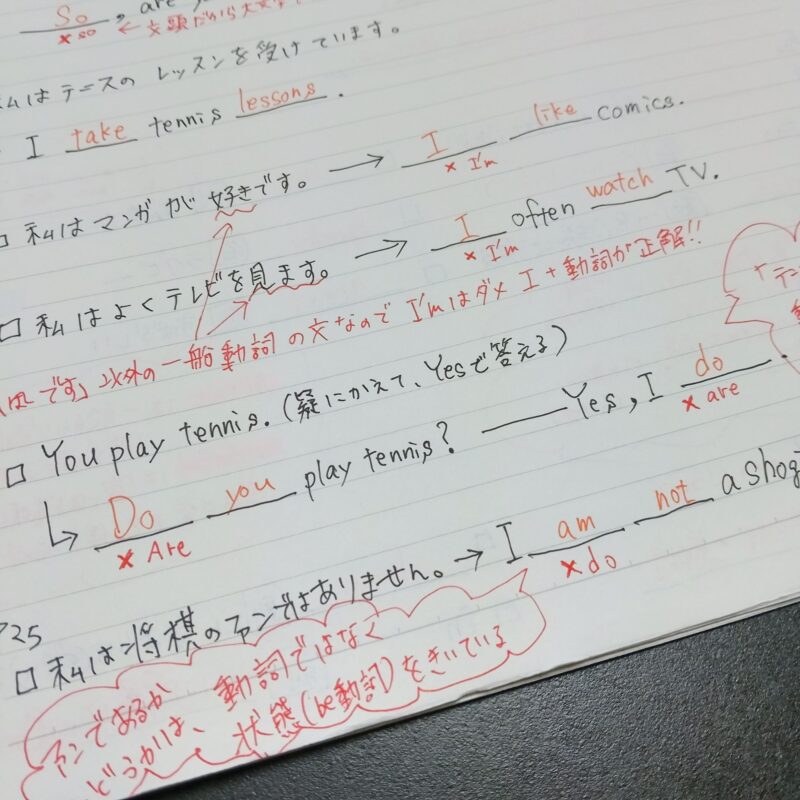 So, are
× so ← 文頭だから大文字
私はテニスのレッスンを受けています。
I take tennis lessons.
□ 私はマンガが好きです。 → I like comics.
× I'm
□ 私はよくテレビを見ます。 → I often watch TV.
× I'm
です」以外の一般動詞の文なので I'mはダメ I+動詞が正解!!
□ You play tennis. (疑にかえて、Yesで答える)
↳ Do you play tennis? — Yes, I do.
× Are × are
P25
□ 私は将棋のファンではありません。→ I am not a shogi
× do
ファンであるか
どうかは、動詞ではなく
状態(be動詞)をきいている